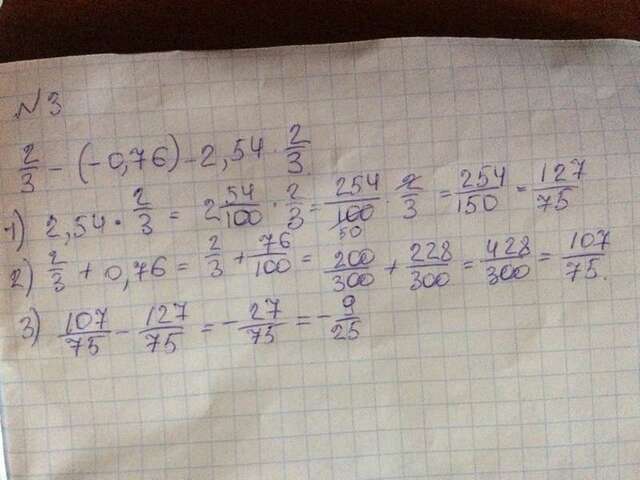 N3
2/3 - (-0,76) - 2,54 · 2/3
1) 2,54 · 2/3 = 2 54/100 · 2/3 = 254/100 50 · 2/3 = 254/150 = 127/75
2) 2/3 + 0,76 = 2/3 + 76/100 = 200/300 + 228/300 = 428/300 = 107/75.
3) 107/75 - 127/75 = - 27/75 = - 9/25